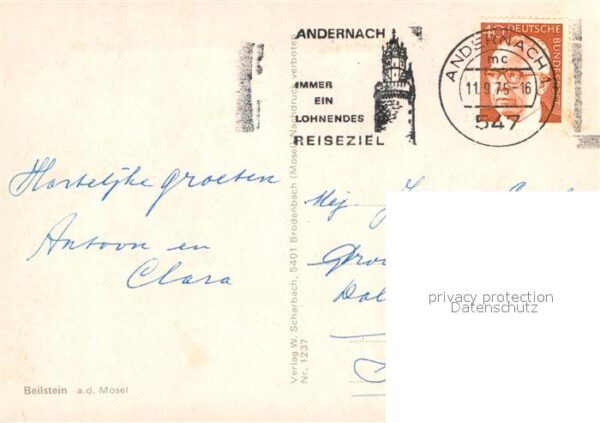 ANDERNACH
IMMER
EIN
LOHNENDES
REISEZIEL
ANDERNACH 1
mc
11.9.75-16
547
40 DEUTSCHE
BUNDES
Hartelijke groeten
Antoon en
Clara
Mej.
privacy protection
Datenschutz
Verlag W. Scharbach, 5401 Brodenbach (Mosel) Nachdruck verboten
Nr. 1237
Beilstein a.d. Mosel